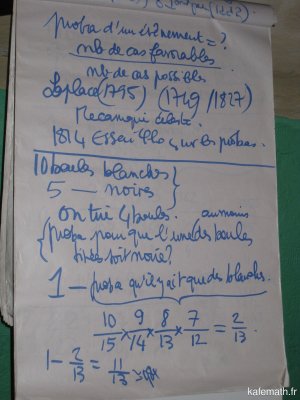 proba d'un évènement = ?
nb de cas favorables
nb de cas possibles
Laplace (1795) (1749/1827)
Mécanique céleste
1814 Essai Philo sur les probas.
10 boules blanches
5 — noires
on tire 4 boules. au moins
proba pour que l'une des boules
tirées soit noire?
1 — proba qu'il y ait que des blanches.
10/15 × 9/14 × 8/13 × 7/12 = 2/13.
1 - 2/13 = 11/13
kafemath.fr